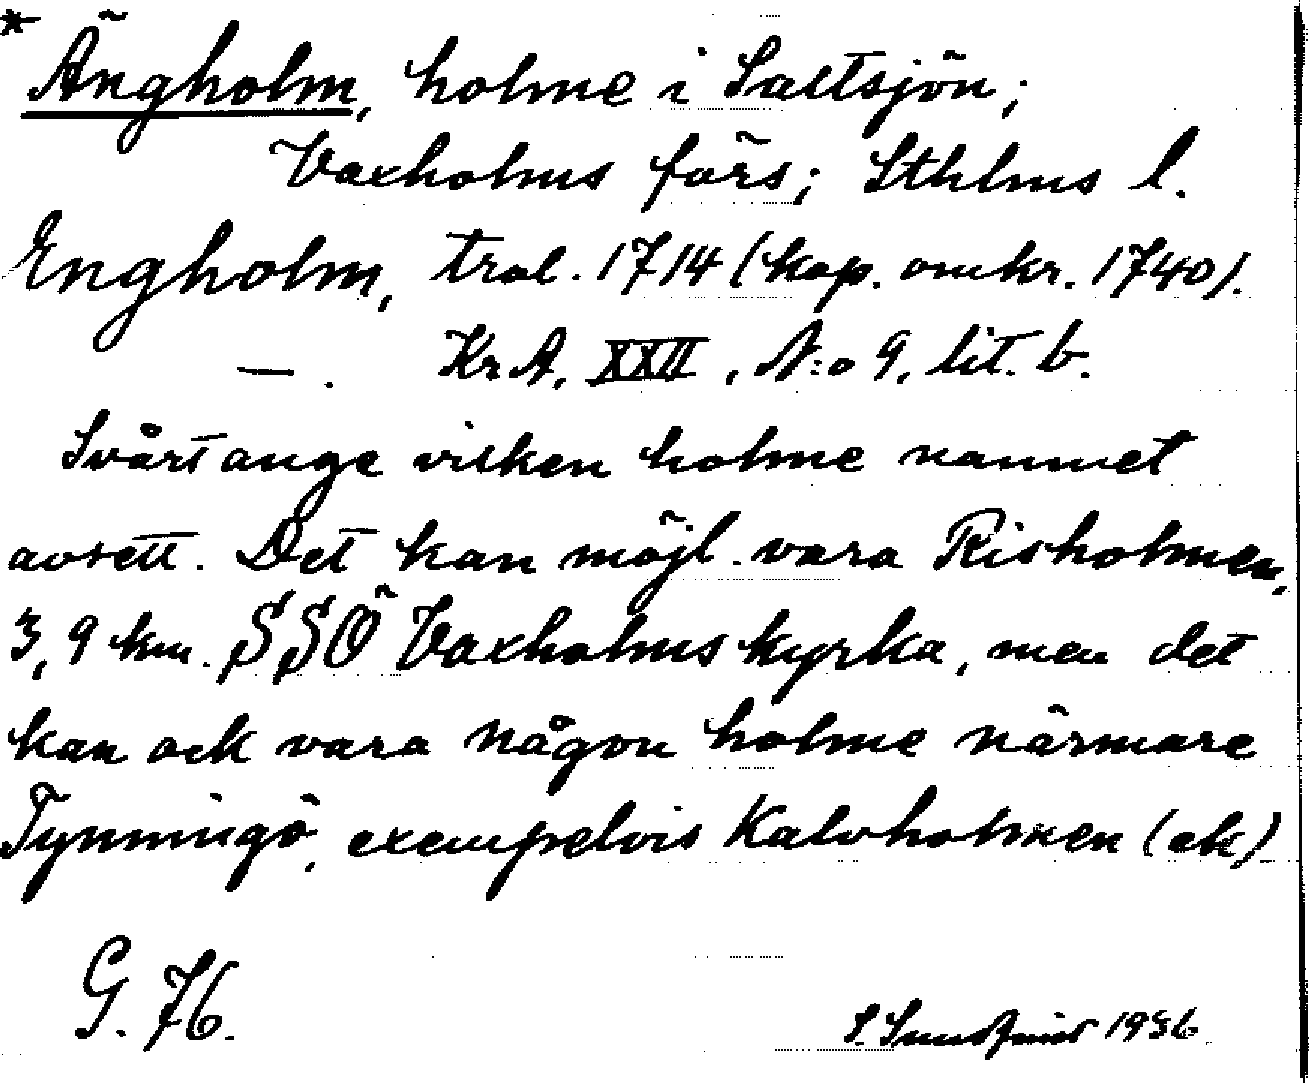 * Ängholm, holme i Saltsjön;
Vaxholms förs; Sthlms l.
Engholm, tral. 1714 (kop. omkr. 1740).
—. Kr.A, XXII, N:o 9, lit. b.
Svårt ange vilken holme namnet
avsett. Det kan möjl. vara Risholmen,
3,9 km. SSÖ Vaxholms kyrka, men det
kan ock vara någon holme närmare
Tynningö, exempelvis Kalvholmen (ek)
G. 76.
S. 1936